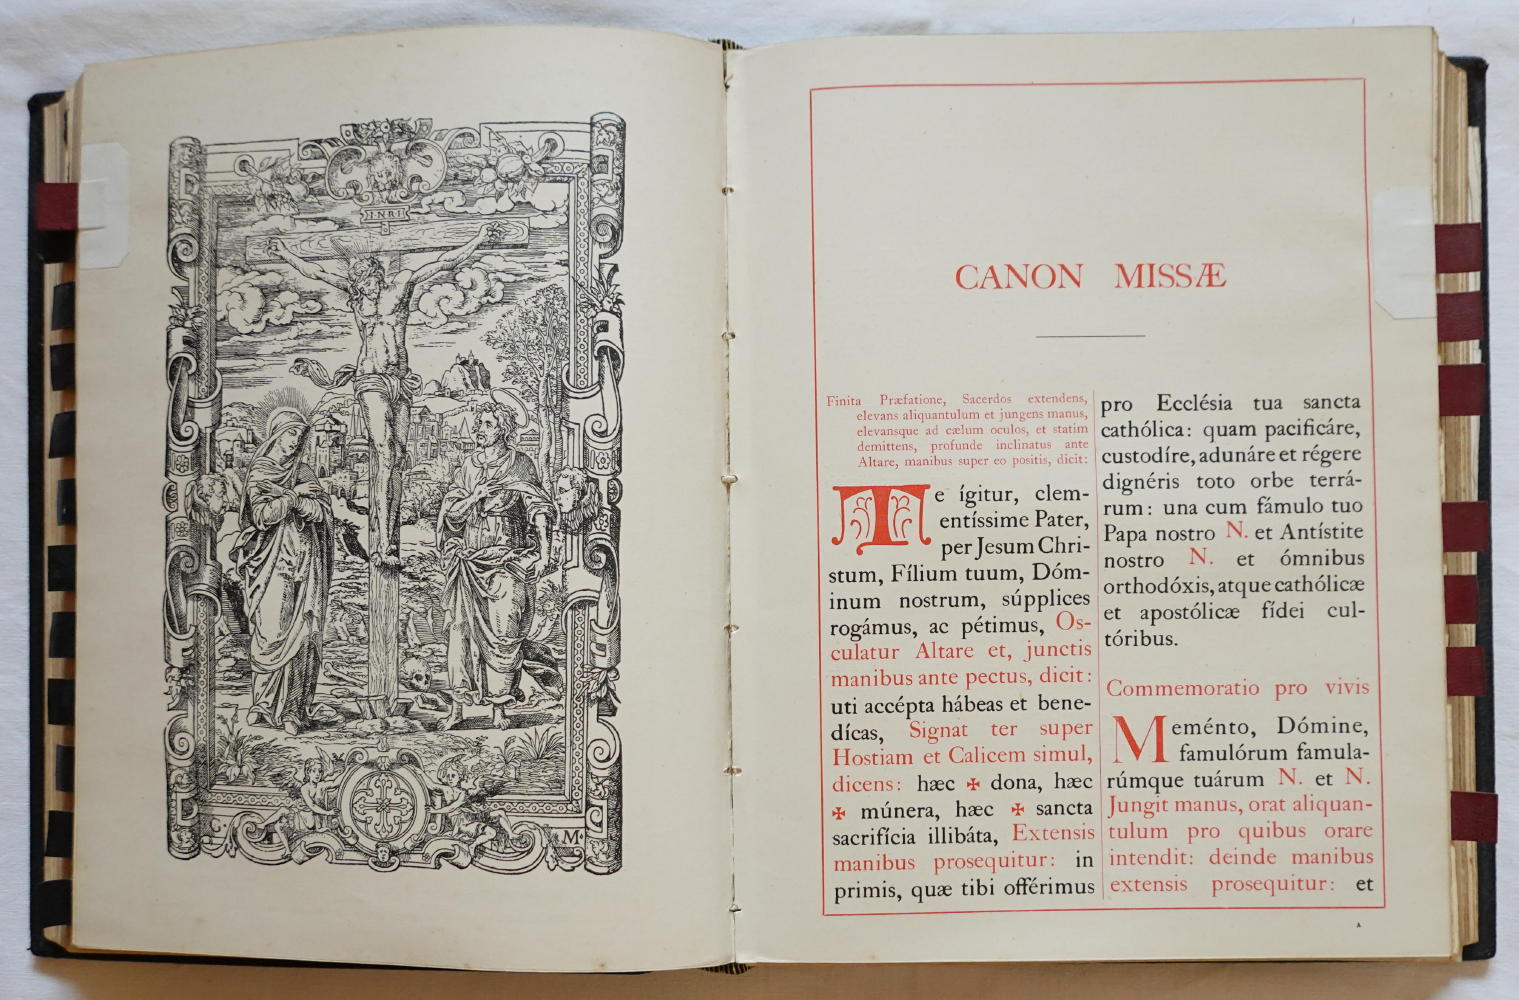 I·N·R·I
M
CANON MISSÆ
Finita Præfatione, Sacerdos extendens,
elevans aliquantulum et jungens manus,
elevansque ad cælum oculos, et statim
demittens, profunde inclinatus ante
Altare, manibus super eo positis, dicit:
Te ígitur, clem-
entíssime Pater,
per Jesum Chri-
stum, Fílium tuum, Dóm-
inum nostrum, súpplices
rogámus, ac pétimus, Os-
culatur Altare et, junctis
manibus ante pectus, dicit:
uti accépta hábeas et bene-
dícas, Signat ter super
Hostiam et Calicem simul,
dicens: hæc ✠ dona, hæc
✠ múnera, hæc ✠ sancta
sacrifícia illibáta, Extensis
manibus prosequitur: in
primis, quæ tibi offérimus
pro Ecclésia tua sancta
cathólica: quam pacificáre,
custodíre, adunáre et régere
dignéris toto orbe terrá-
rum: una cum fámulo tuo
Papa nostro N. et Antístite
nostro N. et ómnibus
orthodóxis, atque cathólicæ
et apostólicæ fídei cul-
tóribus.
Commemoratio pro vivis
Meménto, Dómine,
famulórum famula-
rúmque tuárum N. et N.
Jungit manus, orat aliquan-
tulum pro quibus orare
intendit: deinde manibus
extensis prosequitur: et
A